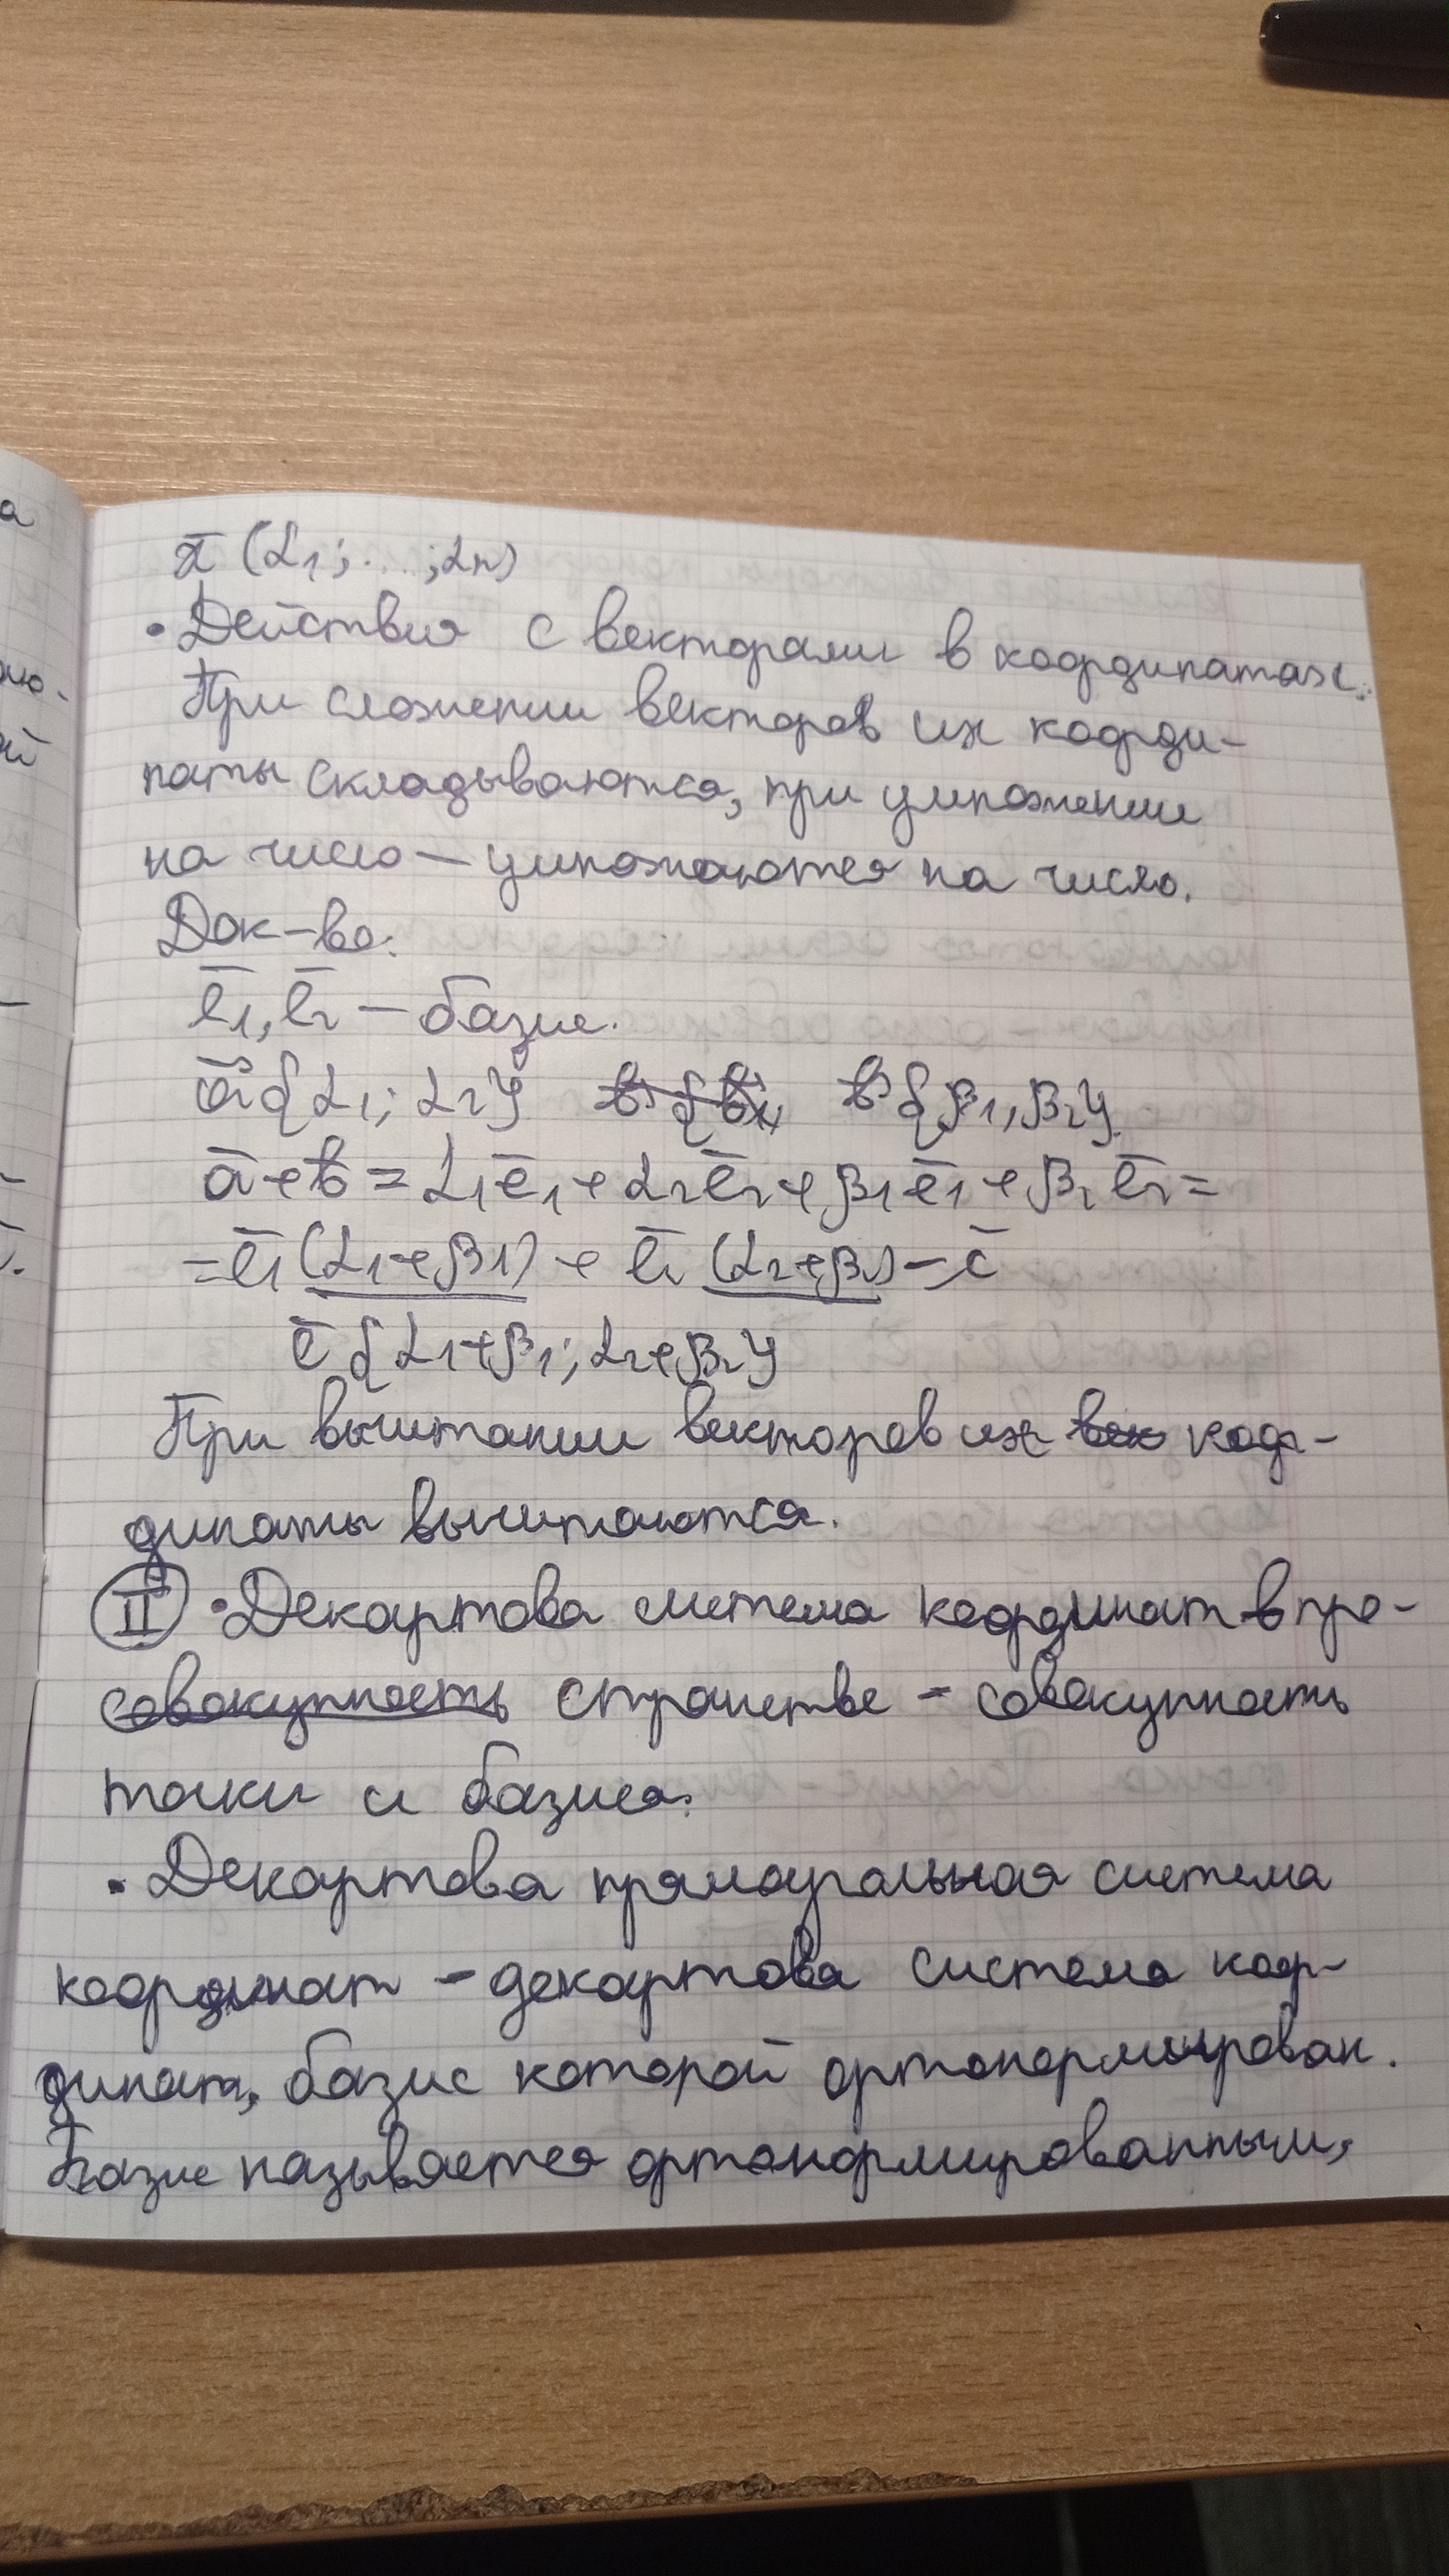 x̄ (α₁; ... ; αn)
• Действия с векторами в координатах.
При сложении векторов их коорди-
наты складываются, при умножении
на число — умножаются на число.
Док-во:
ē₁, ē₂ — базис.
ā {α₁; α₂} b̄ {β₁; β₂}
ā + b̄ = α₁ē₁ + α₂ē₂ + β₁ē₁ + β₂ē₂ =
= ē₁ (α₁+β₁) + ē₂ (α₂+β₂) = c̄
c̄ {α₁+β₁; α₂+β₂}
При вычитании векторов их коор-
динаты вычитаются.
II • Декартова система координат в про-
совокупность странстве - совокупность
точки и базиса.
• Декартова прямоугольная система
координат - декартова система коор-
динат, базис которой ортонормирован.
Базис называется ортонормированным,
а
ню-
ой